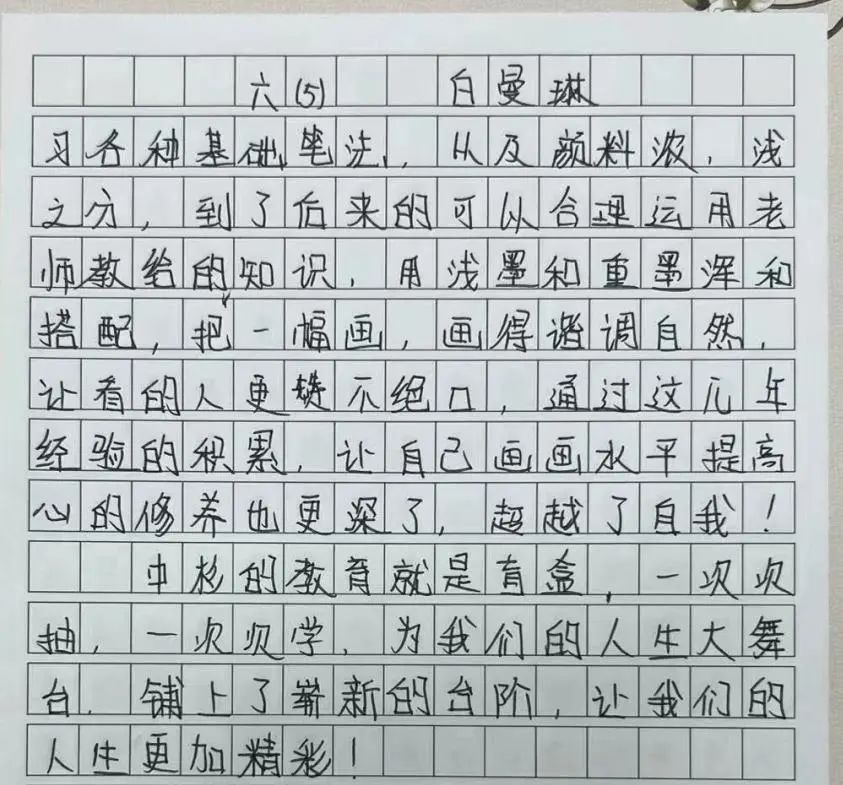 六(5) 白曼琳
习各种基础笔法,从及颜料浓,浅
之分,到了后来的可以合理运用老
师教给的知识,用浅墨和重墨浑和
搭配,把一幅画,画得谐调自然,
让看的人更赞不绝口,通过这几年
经验的积累,让自己画画水平提高
心的修养也更深了,超越了自我!
中杉的教育就是盲盒,一次次
抽,一次次学,为我们的人生大舞
台,铺上了崭新的台阶,让我们的
人生更加精彩!